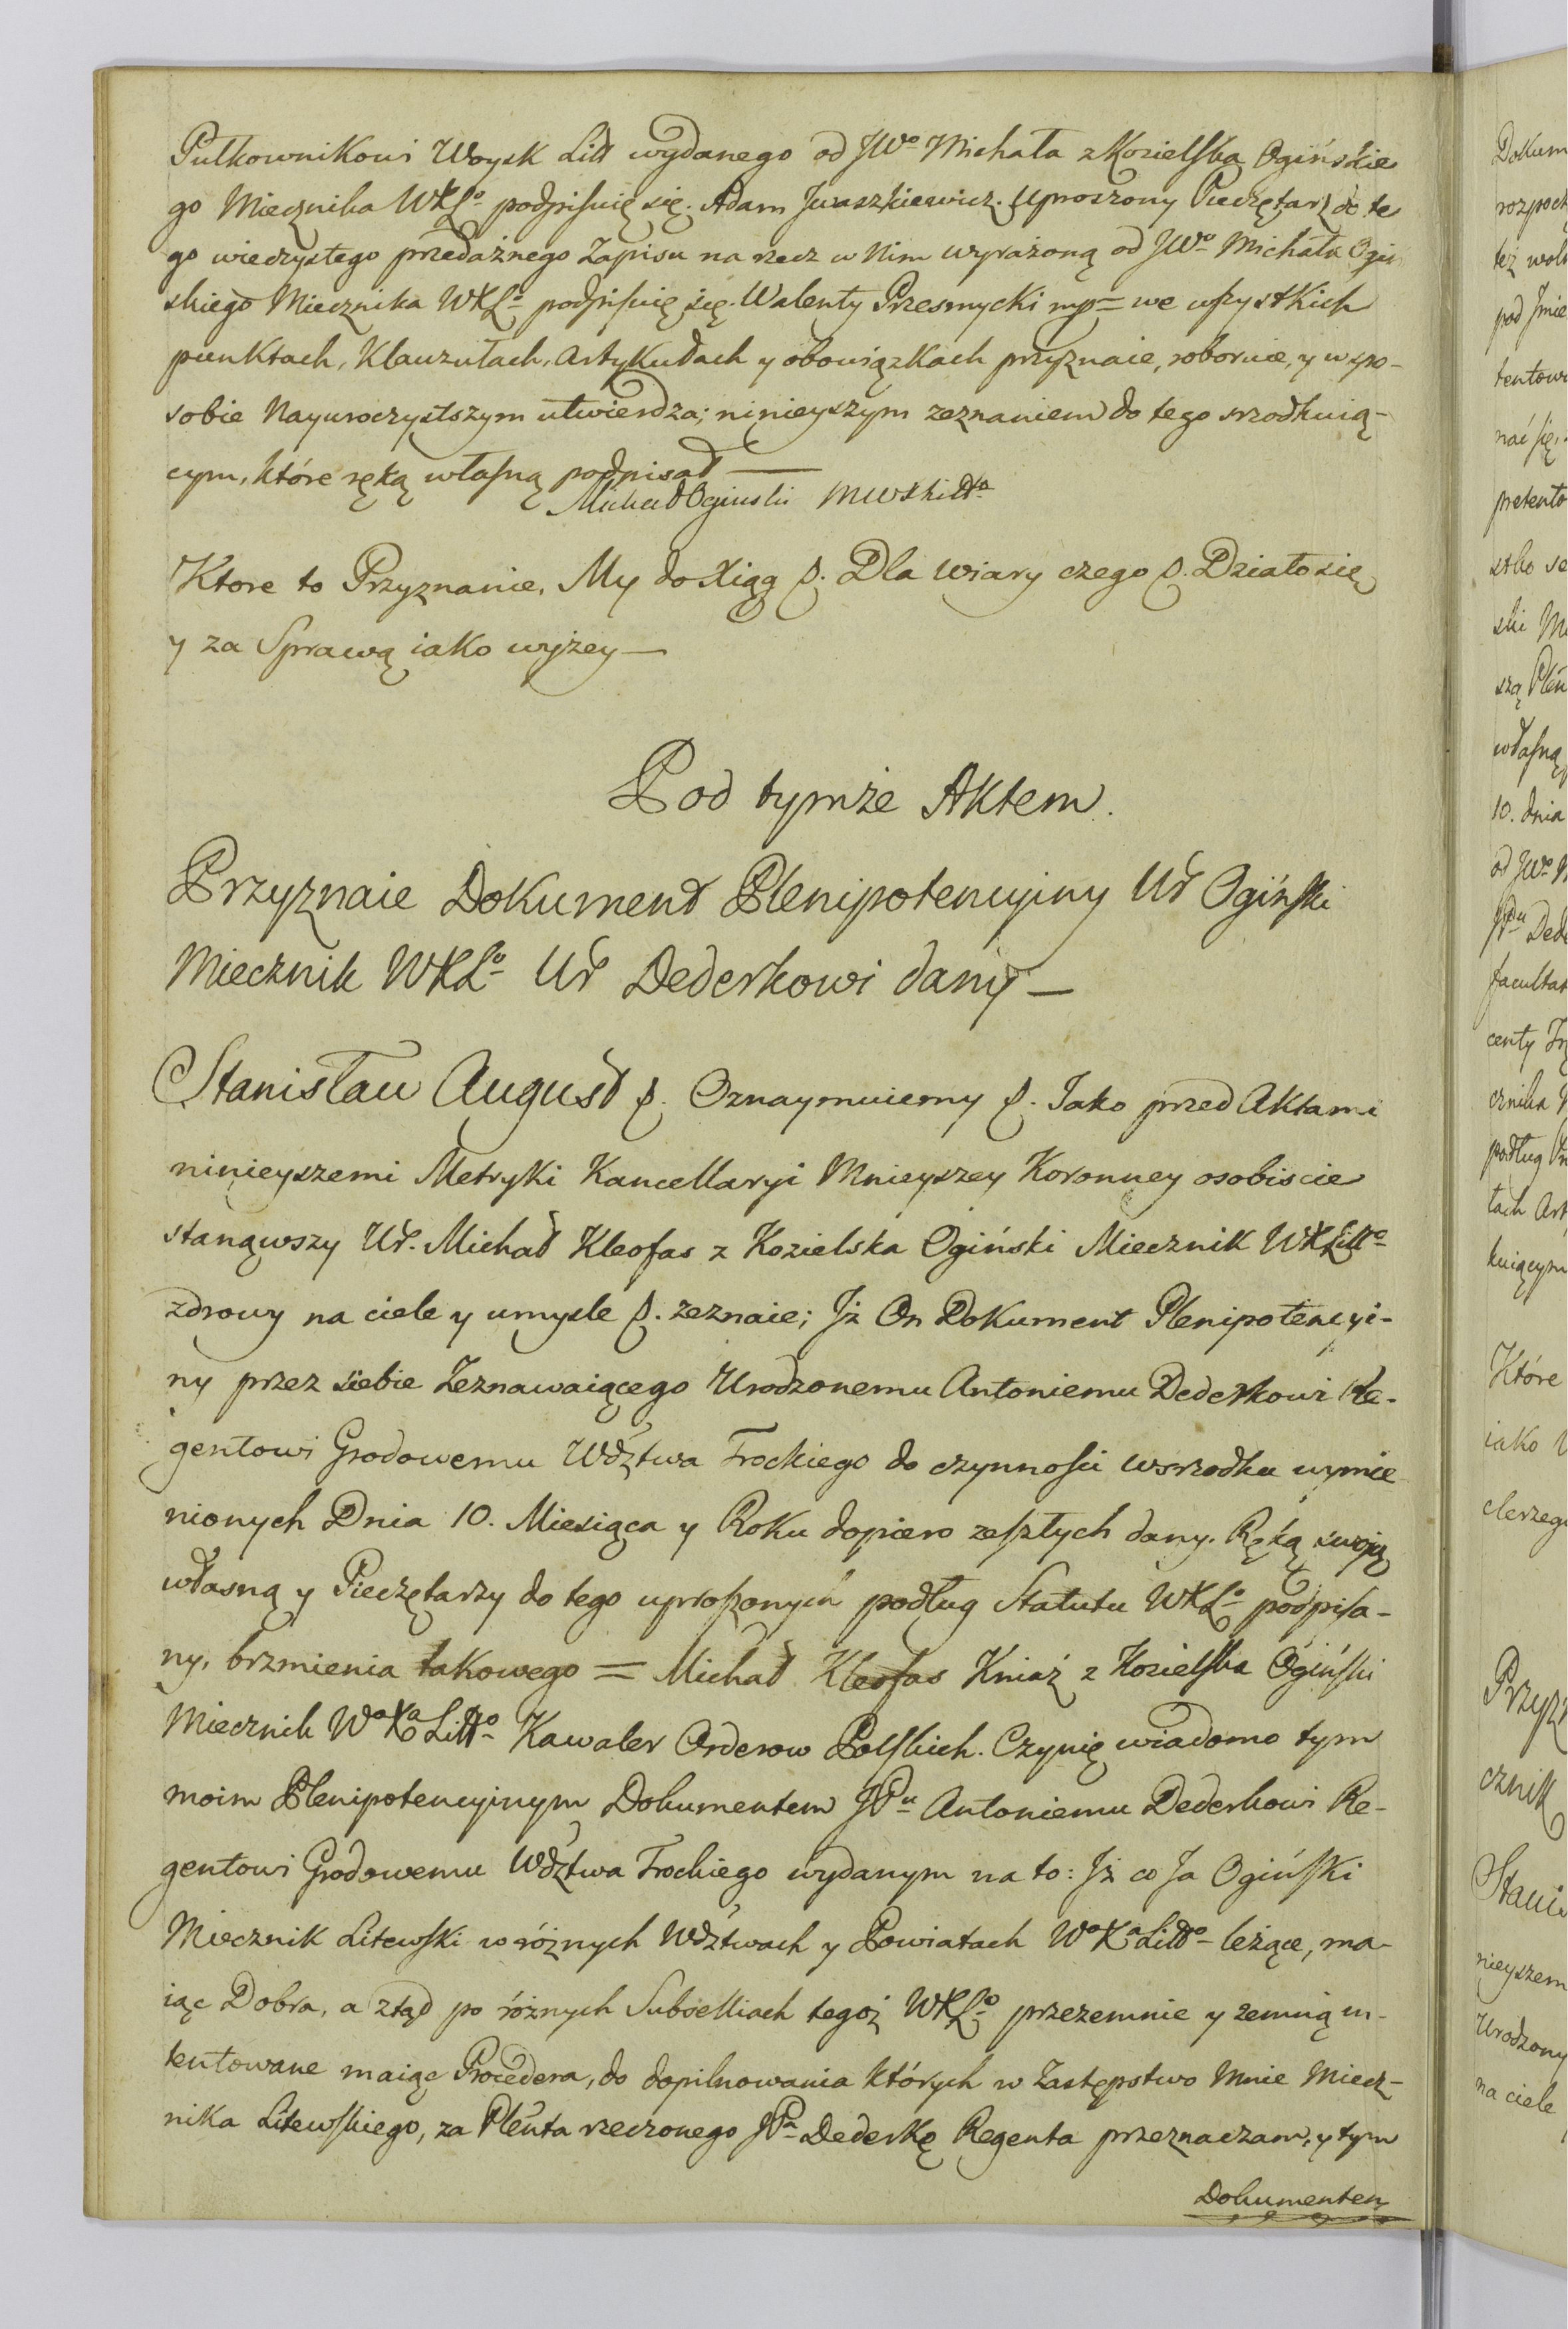 Pułkownikowi Woysk Litt wydanego od JWo Michała z Kozielska Ogińskie
go Miecznika WXLo podpisuię się. Adam Iwaszkiewicz. Uproszony Pieczętarz do te
go wieczystego przedażnego Zapisu na rzecz w Nim wyrażoną od JWo Michała Ogiń
skiego Miecznika WXLo podpisuię się. Walenty Przesmycki mp = we wszystkich
punktach, Klauzułach, Artykułach y obowiązkach przyznaie, roboruie, y w spo-
sobie Nayuroczystszym utwierdza; ninieyszym zeznaniem do tego srzodkuią-
cym, które ręką własną podpisał —
Michał Oginski
Ktore to Przyznanie, My do Xiąg p. Dla wiary czego p. Działo się
y za Sprawą iako wyżey —
Pod tymże Aktem.
Przyznaie Dokument Plenipotencyiny Ur Ogiński
Miecznik WXLo Ur Dederkowi dany —
Stanisław August p. Oznaymuiemy p. Iako przed Aktami
ninieyszemi Metryki Kancellaryi Mnieyszey Koronney osobiscie
stanąwszy Ur. Michał Kleofas z Kozielska Ogiński Miecznik WXLitto
zdrowy na ciele y umysle p. zeznaie; Iż On Dokument Plenipotencyi-
ny przez siebie Zeznawaiącego Urodzonemu Antoniemu Dederkowi Re-
gentowi Grodowemu Wdztwa Trockiego do czynnosci wsrzodku wymie
nionych Dnia 10. Miesiąca y Roku dopiero zeszłych dany. Ręką swoią
własną y Pieczętarzy do tego uproszonych podług Statutu WXLo podpisa-
ny, brzmienia takowego = Michał Kleofas Kniaź z Kozielska Ogiński
Miecznik Wo Xa Litto Kawaler Orderow Polskich. Czynię wiadomo tym
moim Plenipotencyinym Dokumentem JPu Antoniemu Dederkowi Re-
gentowi Grodowemu Wdztwa Trockiego wydanym na to: Iż co Ja Ogiński
Miecznik Litewski w różnych Wdztwach y Powiatach Wo Xa Litto leżące, ma-
iąc Dobra, a ztąd po różnych Subselliach tegoż WXLo przezemnie y zemną in-
tentowane maiąc Procedera, do dopilnowania których w Zastępstwo Mnie Miecz-
nika Litewskiego, za Plenta rzeczonego JPa Dederkę Regenta przeznaczam, y tym
Dokumentem